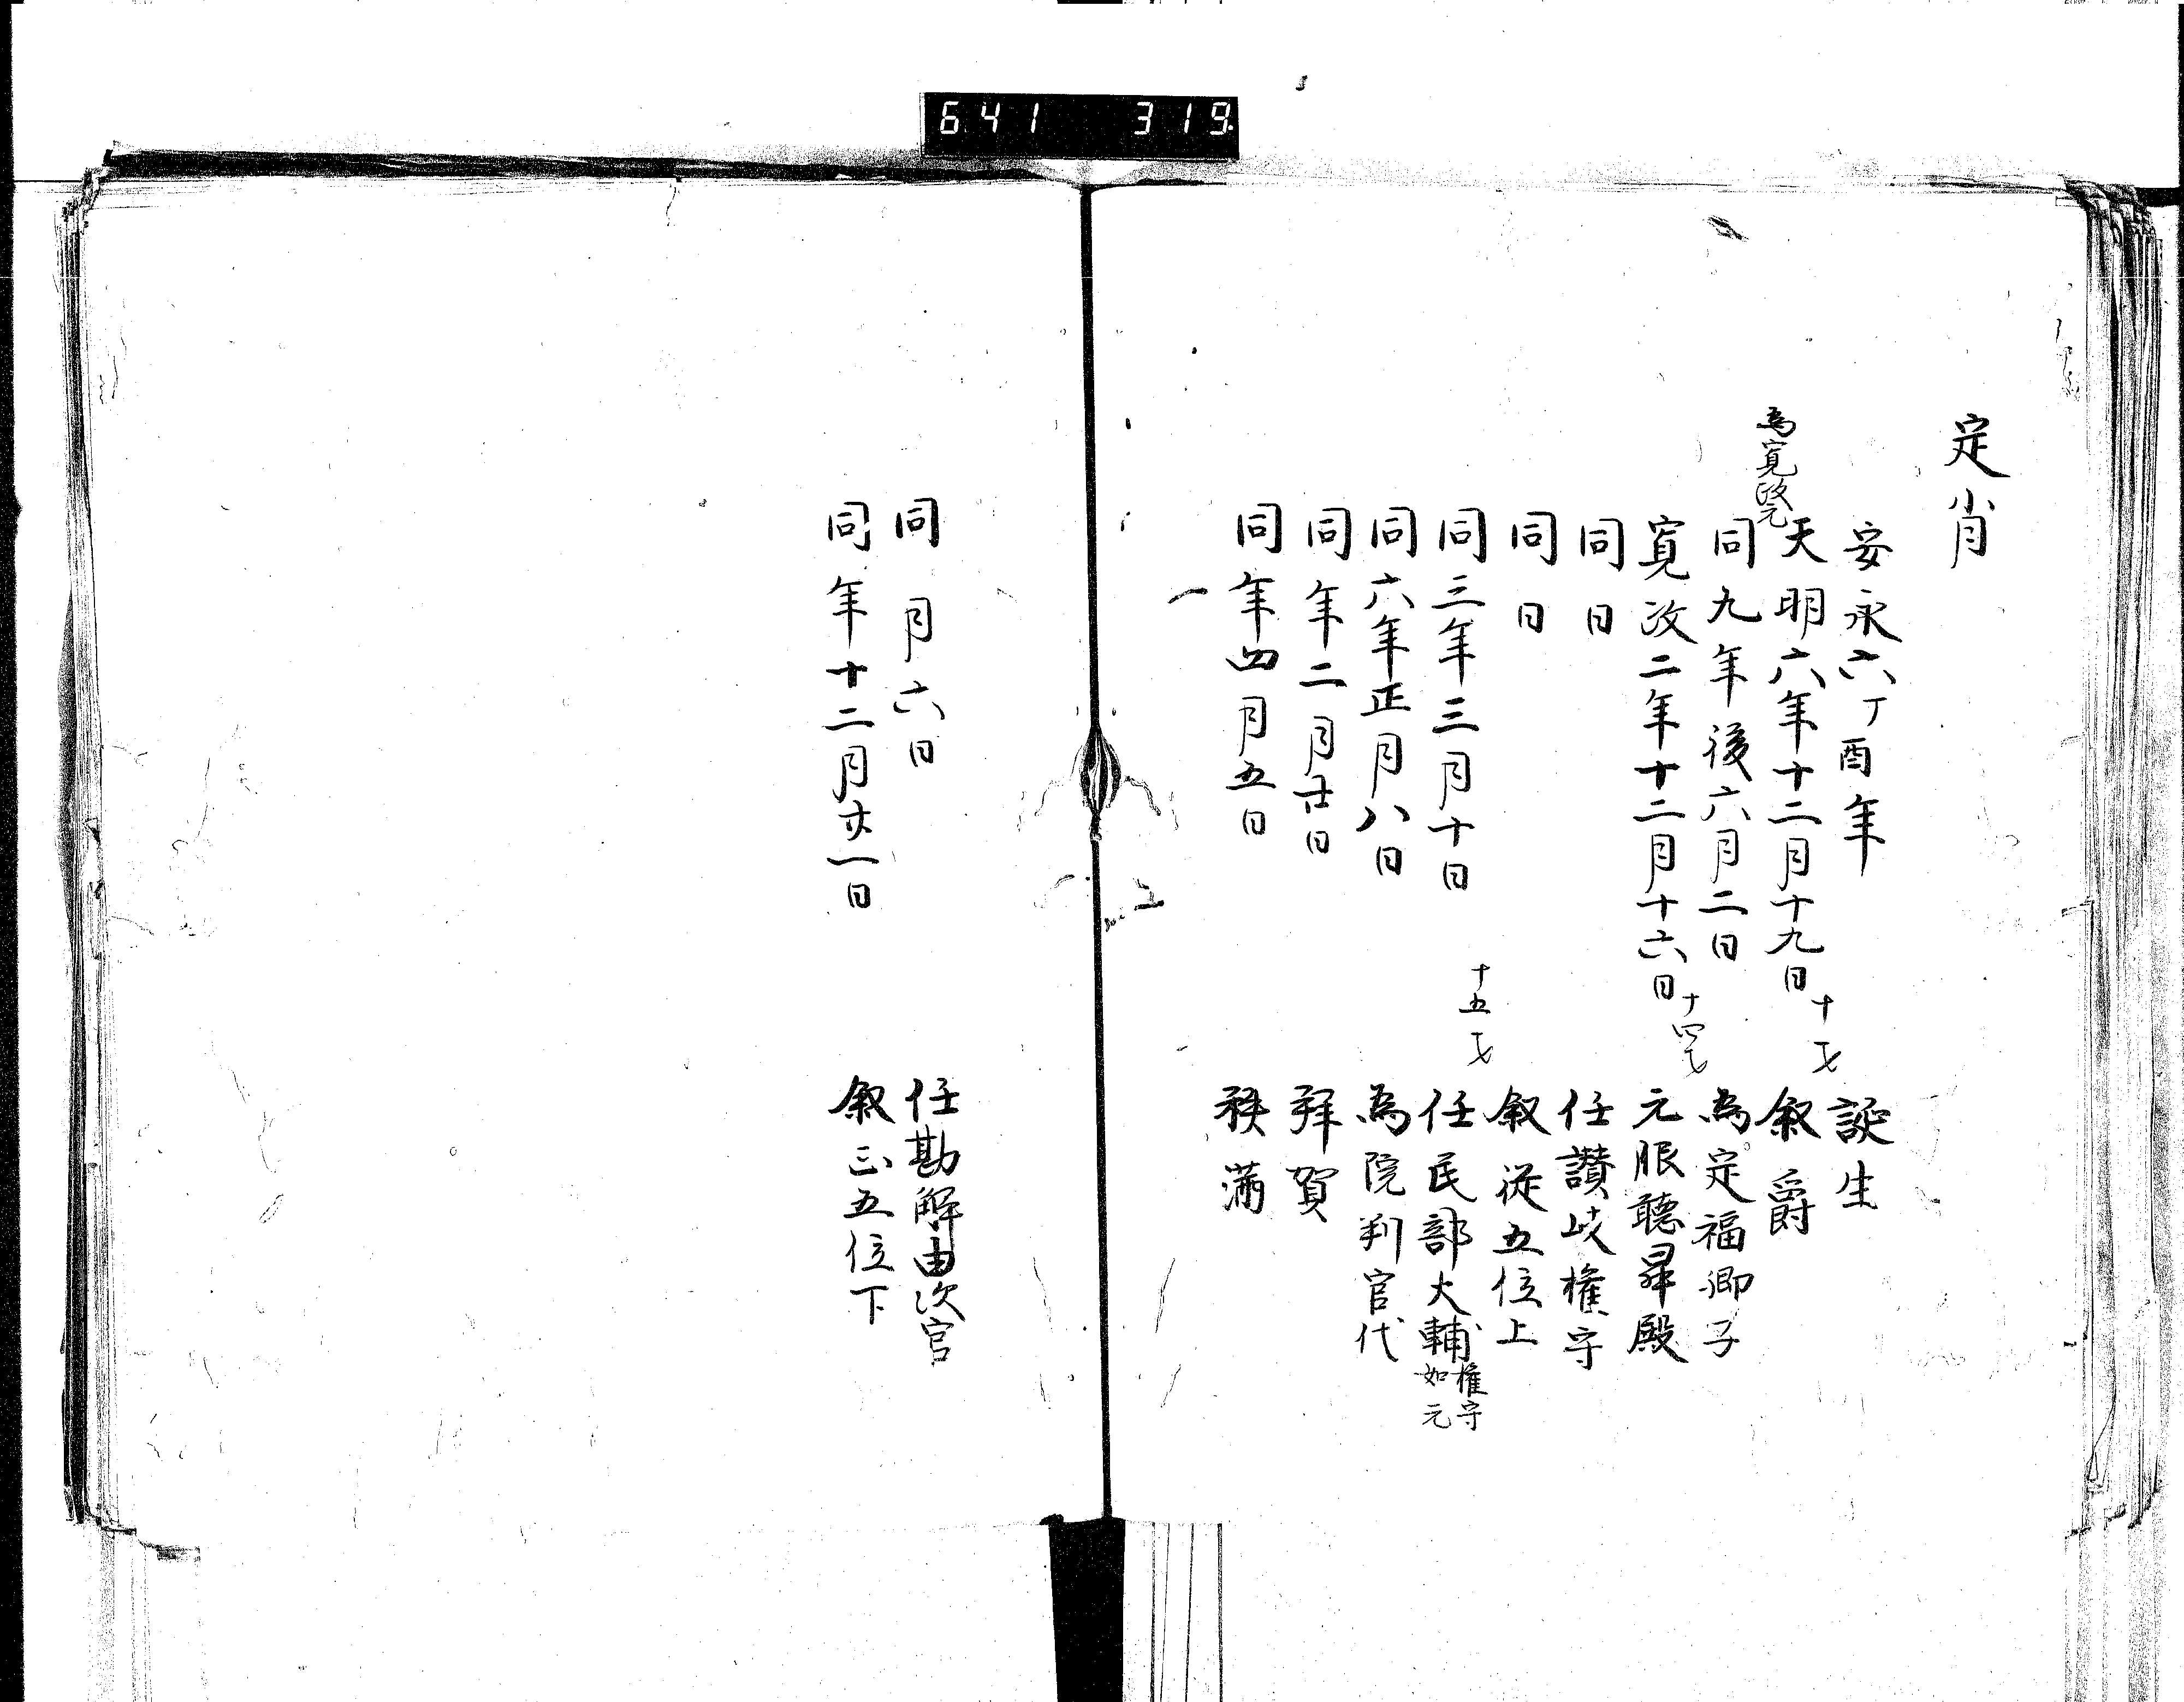 641 319
定肖
安永六丁酉年 誕生
天明六年十二月十九日 十才 叙爵
為寛政元
同九年後六月二日 為定福卿子
寛政二年十二月十六日 十四才 元服聽昇殿
同日 任讃岐権守
同日 叙従五位上
同三年三月十日 十五才 任民部大輔 権守如元
同六年正月八日 為院判官代
同年二月廿日 拜賀
同年四月五日 秩満
同月六日 任勘解由次官
同年十二月廿一日 叙正五位下